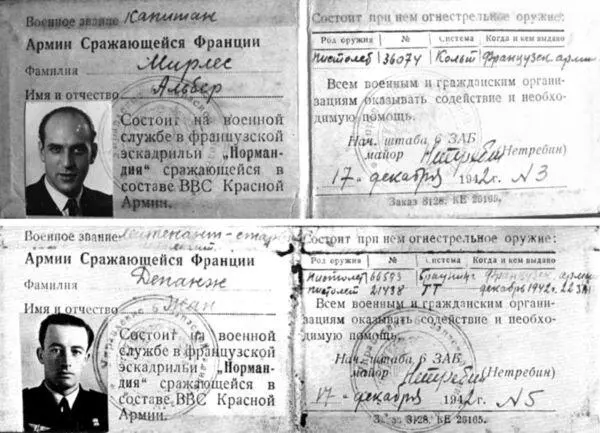 Военное звание Капитан
Армии Сражающейся Франции
Фамилия Мирлес
Имя и отчество Альбер
Состоит на военной
службе в французской
эскадрильи „Норман-
дия" сражающейся в
составе ВВС Красной
Армии.
Состоит при нем огнестрельное оружие:
Род оружия № Система Когда и кем выдано
Пистолет 36074 Кольт Французск. арми
Всем военным и гражданским органи-
зациям оказывать содействие и необхо-
димую помощь.
Нач. штаба 6 ЗАБ
майор Нетребин (Нетребин)
17 декабря 1942 г. №3
Заказ 3128. КЕ 26165.
Военное звание лейтенант-
Армии Сражающейся Франции
Фамилия Депанж
Имя и отчество Жан
Состоит на военной
службе в французской
эскадрильи „Норман-
дия" сражающейся в
составе ВВС Красной
Армии.
Состоит при нем огнестрельное оружие:
Род оружия № Система Когда и кем выдано
Пистолет 66593 Браунинг Француз. арми
пистолет 21438 ТТ декабрь 1942г.
Всем военным и гражданским органи-
зациям оказывать содействие и необхо-
димую помощь.
Нач. штаба 6 ЗАБ
майор Нетребин (Нетребин)
17 декабря 1942 г. №5
Заказ 3128. КЕ 26165.